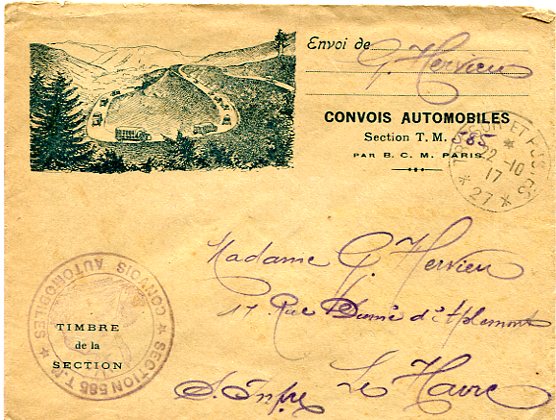 Envoi de G. Hervieu
CONVOIS AUTOMOBILES
Section T. M. 585
PAR B. C. M. PARIS.
TRESOR ET POSTES
22-10
17
* 27 *
Madame G. Hervieu
17 Rue Dumé d'Aplemont
Le Havre
S. Infre
CONVOIS AUTOMOBILES
SECTION 585 T. M.
TIMBRE
de la
SECTION